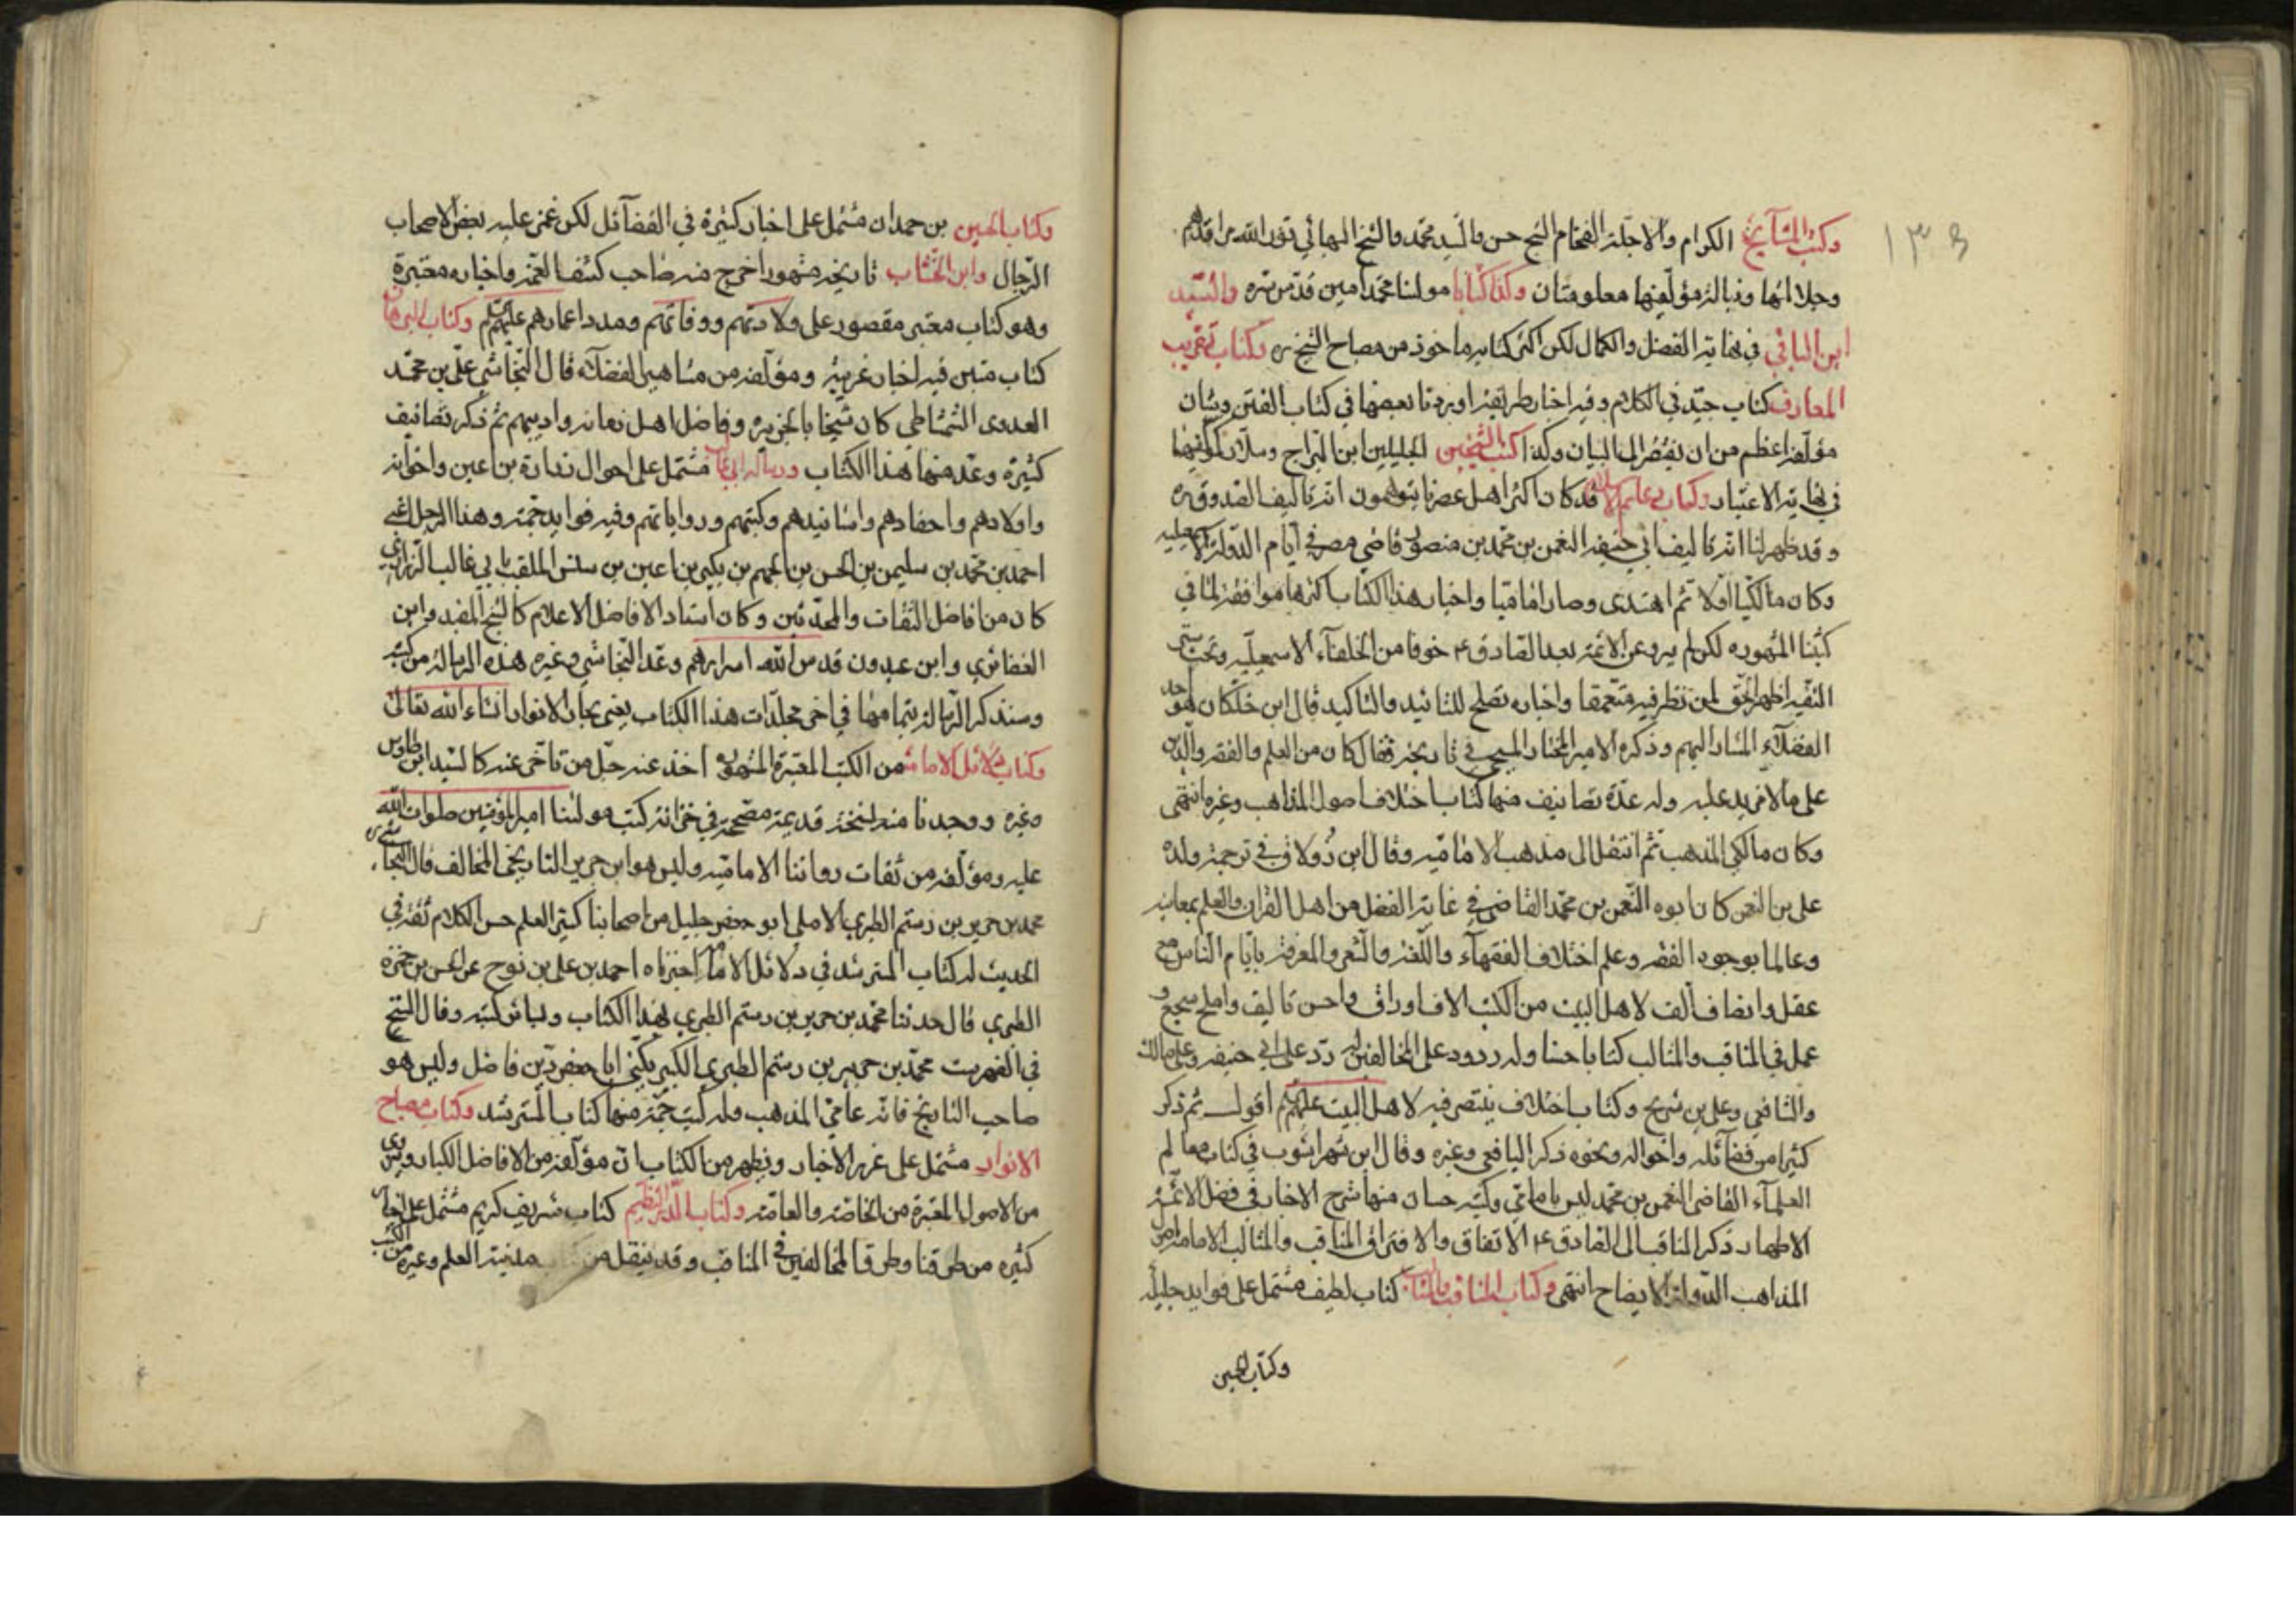 وكتب المشايخ الكرام والاجلة الفخام الشيخ حسن والسيد محمد والشيخ البهائي نور الله مراقدهم
وجلالتها ونبالة مؤلفيها معلومتان وكذا كتابا مولنا محمد امين قدس سره والسيد
ابن الباقي في نهاية الفضل والكمال لكن اكثر كتابه ماخوذ من مصباح الشيخ ره وكتاب تقريب
المعارف كتاب جيد في الكلام وفيه اخبار طريفة اوردنا بعضها في كتاب الفتن وشان
مؤلفه اعظم من ان يفتقر الى البيان وكذا كتب الشيخين الجليلين ابن البراج وسلار كمؤلفيها
في نهاية الاعتبار وكتاب دعائم الاسلام قد كان اكثر اهل عصرنا يتوهمون انه تاليف الصدوق ره
وقد ظهر لنا انه تاليف ابي حنيفه النعمن بن محمد بن منصور قاضي مصر في ايام الدولة الاسمعيليه
وكان مالكيا اولا ثم اهتدى وصار اماميا واخبار هذا الكتاب اكثرها موافقة لما في
كتبنا المشهوره لكن لم يرو عن الائمة بعد الصادق ع خوفا من الخلفآء الاسمعيلية وتحت ستر
التقية اظهر الحق لمن نظر فيه متعمقا واخباره تصلح للتائيد والتاكيد قال ابن خلكان هو احد
الفضلآء المشار اليهم وذكره الامير المختار المسبحي في تاريخه فقال كان من العلم والفقه والدين
على ما لا مزيد عليه وله عدة تصانيف منها كتاب اختلاف اصول المذاهب وغيره انتهى
وكان مالكي المذهب ثم انتقل الى مذهب الامامية وقال ابن زولاق في ترجمة ولده
على بن النعمن كان ابوه النعمن بن محمد القاضي في غاية الفضل من اهل القران والعلم بمعانيه
وعالما بوجوه الفقه وعلم اختلاف الفقهآء واللغة والشعر والمعرفة بايام الناس مع
عقل وانصاف الف لاهل البيت من الكتب الاف اوراق باحسن تاليف واملح سجع و
عمل في المناقب والمثالب كتابا حسنا وله ردود على المخالفين له رد على ابي حنيفه وعلى مالك
والشافعي وعلى بن شريح وكتاب اختلاف ينتصر فيه لاهل البيت عليهم اقول ثم ذكر
كثيرا من فضآئله واحواله ونحوه ذكر اليافعي وغيره وقال ابن شهراشوب في كتاب معالم
العلمآء القاضي النعمن بن محمد ليس بامامي وكتبه حسان منها شرح الاخبار في فضل الائمة
الاطهار ذكر المناقب الى الصادق ع الاتفاق والافتراق المناقب والمثالب الامامة اصول
المذاهب الدولة الايضاح انتهى وكتاب المناقب والمثالب كتاب لطيف مشتمل على فوايد جليلة
وكتاب الحسين
وكتاب الحسين بن حمدان مشتمل على اخبار كثيرة في الفضآئل لكن غمز عليه بعض الاصحاب
الرجال وابن الخشاب تاريخه مشهور اخرج منه صاحب كشف الغمة واخباره معتبرة
وهو كتاب معتبر مقصور على ولادتهم ووفاتهم ومدد اعمارهم عليهم وكتاب البرهان
كتاب متين فيه اخبار غريبة ومؤلفه من مشاهير الفضلآء قال النجاشي علي بن محمد
العدوى الشمشاطى كان شيخنا بالجزيره وفاضل اهل زمانه واديبهم ثم ذكر تصانيف
كثيرة وعد منها هذا الكتاب ورسالة ابي غالب مشتمل على احوال زرارة بن اعين واخوانه
واولادهم واحفادهم واسانيدهم وكتبهم ورواياتهم وفيه فوايد جمة وهذا الرجل اعنى
احمد بن محمد بن سليمن بن الحسن بن الجهم بن بكير بن اعين بن سنسن الملقب بابي غالب الزراري
كان من افاضل الثقات والمحدثين وكان استاد الافاضل الاعلام كالشيخ المفيد وابن
الغضائري وابن عبدون قدس الله اسرارهم وعد النجاشي وغيره هذه الرسالة من كتبه
وسنذكر الرسالة بتمامها في اخر مجلدات هذا الكتاب يعنى بحار الانوار انشاء الله تعالى
وكتاب دلائل الامامة من الكتب المعتبرة المشهورة اخذ عنه جل من تاخر عنه كالسيد ابن طاوس
وغيره ووجدنا منه نسخة قديمة مصححة في خزانة كتب مولنا امير المؤمنين صلوات الله
عليه ومؤلفه من ثقات رواتنا الامامية وليس هو ابن جرير التاريخي المخالف قال النجاشي ره
محمد بن جرير بن رستم الطبري الاملي ابو جعفر جليل من اصحابنا كثير العلم حسن الكلام ثقة في
الحديث له كتاب المسترشد في دلائل الامامة اخبرناه احمد بن على بن نوح عن الحسن بن حمزه
الطبري قال حدثنا محمد بن جرير بن رستم الطبري بهذا الكتاب وبسائر كتبه وقال الشيخ
في الفهرست محمد بن جرير بن رستم الطبري الكبير يكنى ابا جعفر دين فاضل وليس هو
صاحب التاريخ فانه عامي المذهب وله كتب جمة منها كتاب المسترشد وكتاب مصباح
الانوار مشتمل على غرر الاخبار ويظهر من الكتاب ان مؤلفه من الافاضل الكبار ويروى
من الاصول المعتبرة من الخاصة والعامة وكتاب الدر النظيم كتاب شريف كريم مشتمل على اخبار
كثيره من طرقنا وطرق المخالفين في المناقب وقد ينقل من كتاب مدينة العلم وغيره من الكتب